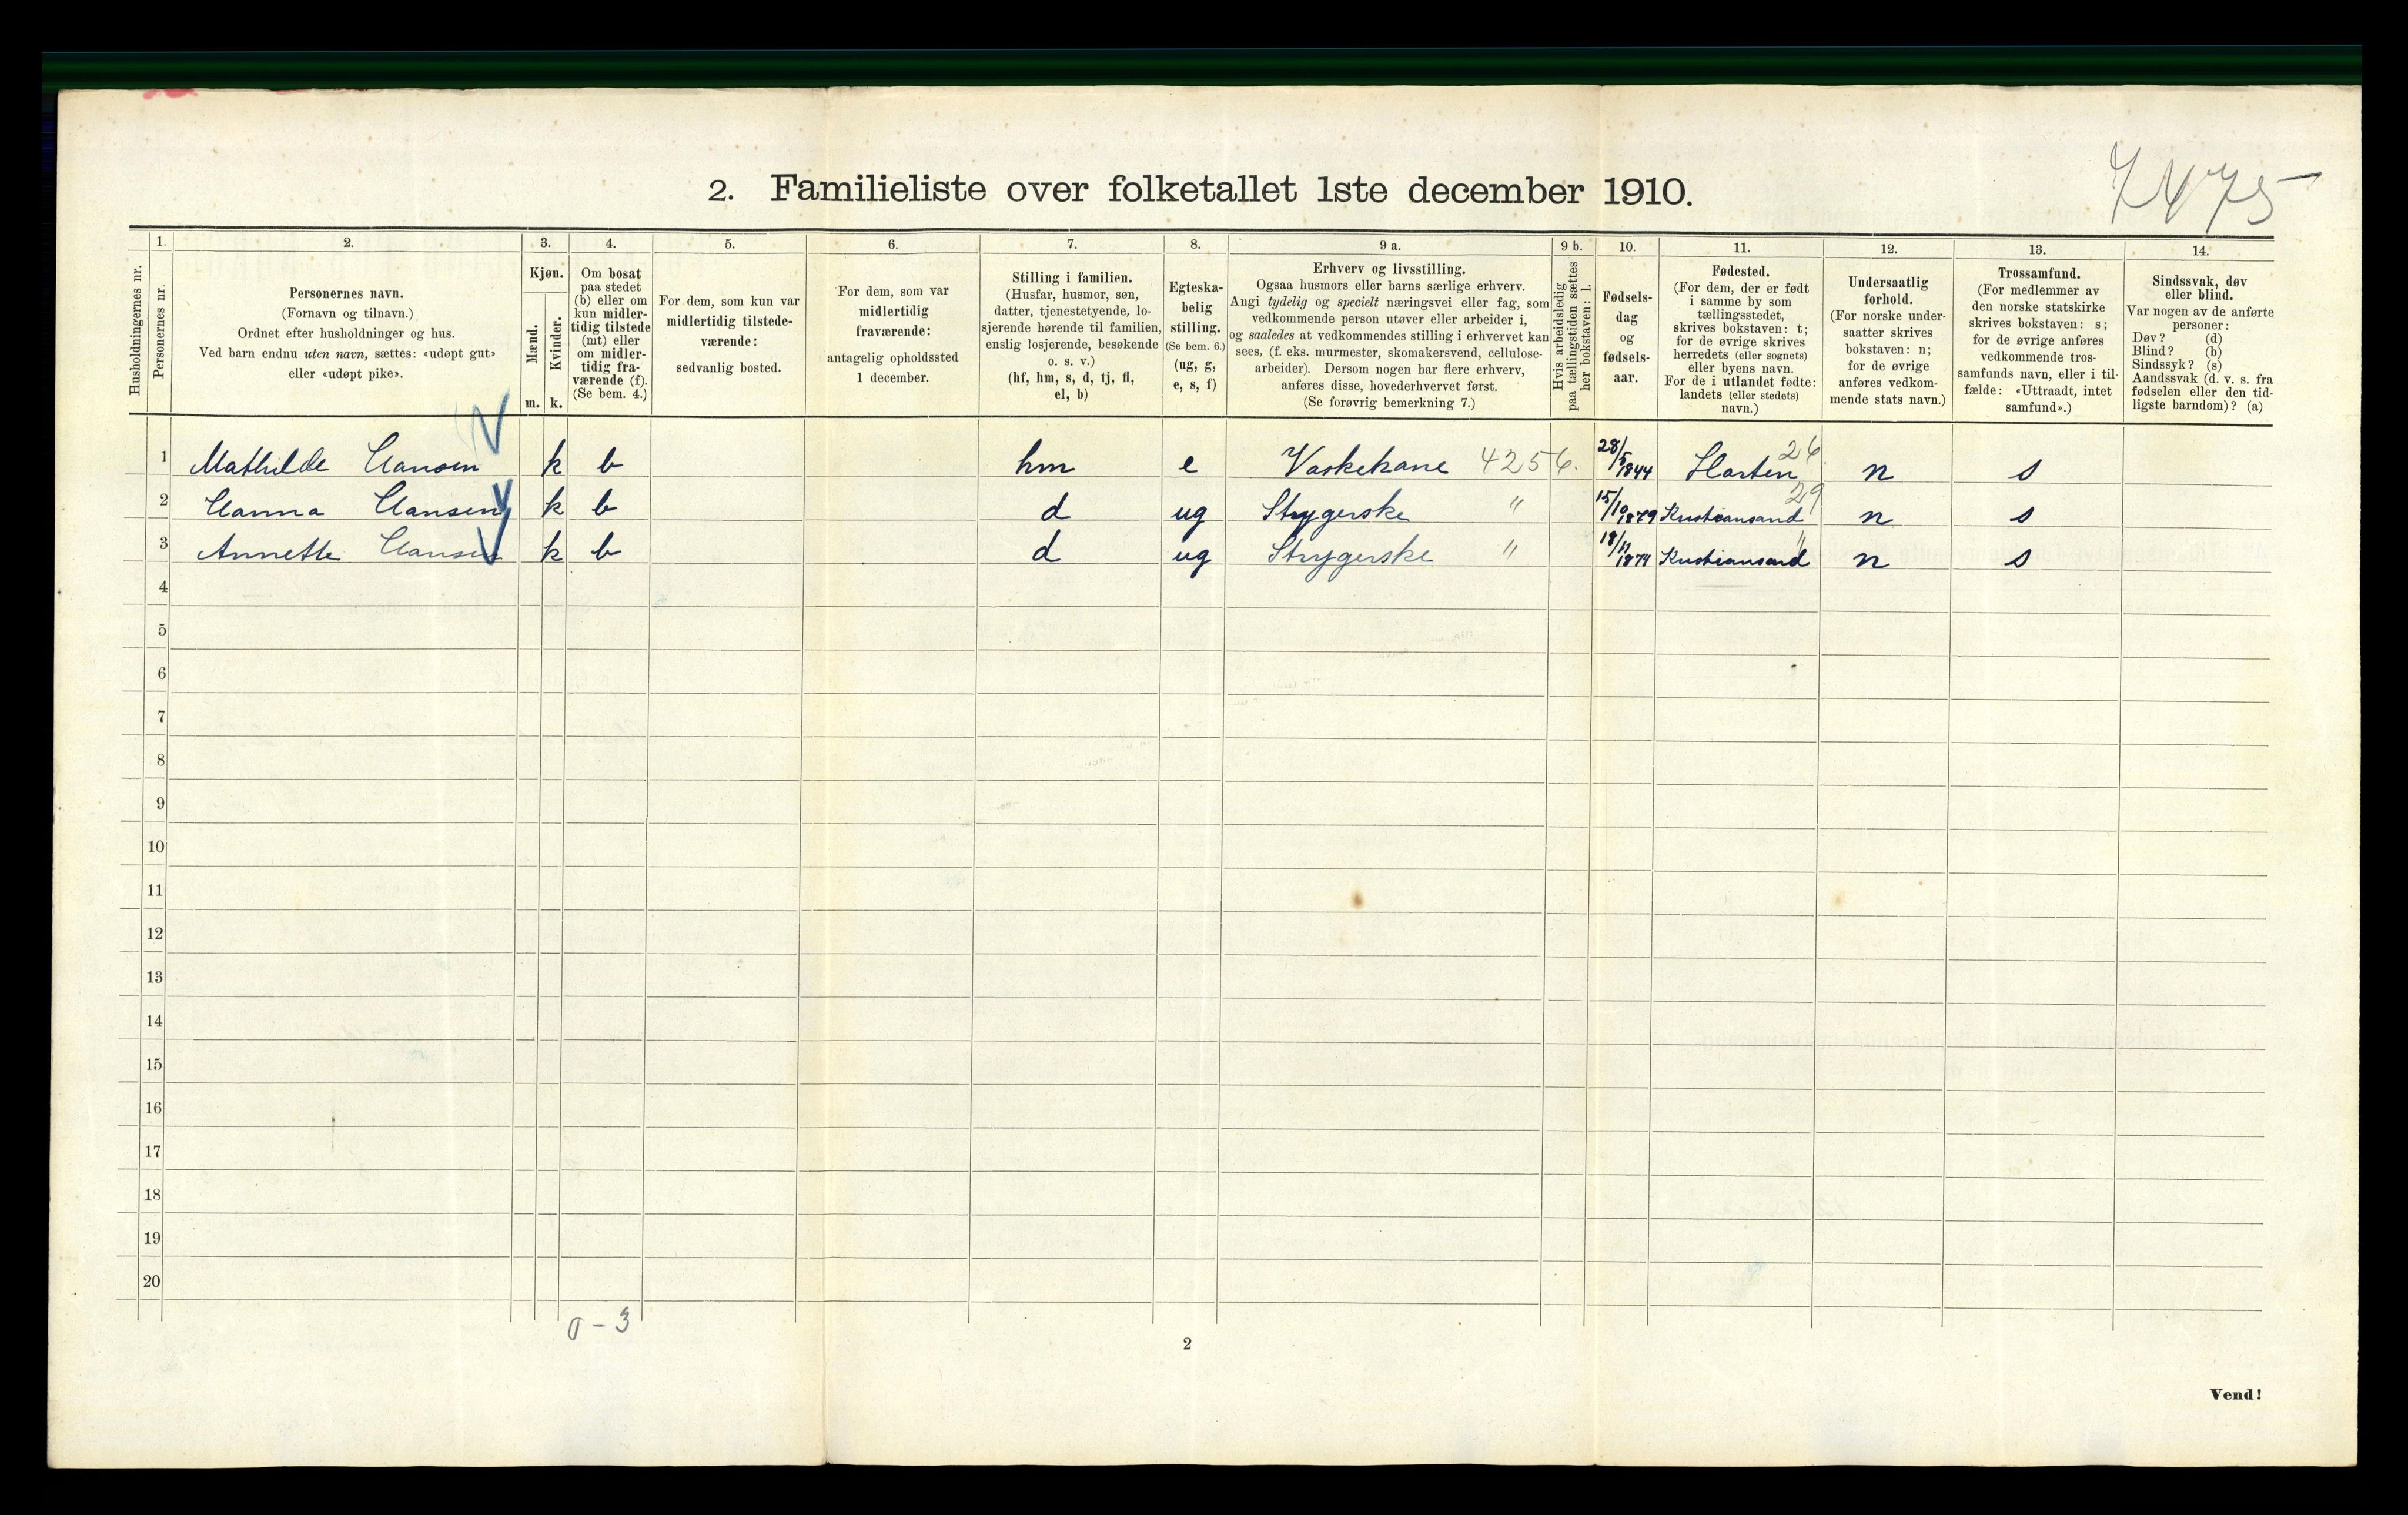 7475
2. Familieliste over folketallet 1ste december 1910.
Husholdningernes nr.
1.
Personernes nr.
2.
Personernes navn.
(Fornavn og tilnavn.)
Ordnet efter husholdninger og hus.
Ved barn endnu uten navn, sættes: «udøpt gut»
eller «udøpt pike».
3.
Kjøn.
Mænd.
Kvinder.
m. k.
4.
Om bosat
paa stedet
(b) eller om
kun midler-
tidig tilstede
(mt) eller
om midler-
tidig fra-
værende (f).
(Se bem. 4.)
5.
For dem, som kun var
midlertidig tilstede-
værende:
sedvanlig bosted.
6.
For dem, som var
midlertidig
fraværende:
antagelig opholdssted
1 december.
7.
Stilling i familien.
(Husfar, husmor, søn,
datter, tjenestetyende, lo-
sjerende hørende til familien,
enslig losjerende, besøkende
o. s. v.)
(hf, hm, s, d, tj, fl,
el, b)
8.
Egteska-
belig
stilling.
(Se bem. 6.)
(ug, g,
e, s, f)
9 a.
Erhverv og livsstilling.
Ogsaa husmors eller barns særlige erhverv.
Angi tydelig og specielt næringsvei eller fag, som
vedkommende person utøver eller arbeider i,
og saaledes at vedkommendes stilling i erhvervet kan
sees, (f. eks. murmester, skomakersvend, cellulose-
arbeider). Dersom nogen har flere erhverv,
anføres disse, hovederhvervet først.
(Se forøvrig bemerkning 7.)
9 b.
Hvis arbeidsledig
paa tællingstiden sættes
her bokstaven: l.
10.
Fødsels-
dag
og
fødsels-
aar.
11.
Fødested.
(For dem, der er født
i samme by som
tællingsstedet,
skrives bokstaven: t;
for de øvrige skrives
herredets (eller sognets)
eller byens navn.
For de i utlandet fødte:
landets (eller stedets)
navn.)
12.
Undersaatlig
forhold.
(For norske under-
saatter skrives
bokstaven: n;
for de øvrige
anføres vedkom-
mende stats navn.)
13.
Trossamfund.
(For medlemmer av
den norske statskirke
skrives bokstaven: s;
for de øvrige anføres
vedkommende tros-
samfunds navn, eller i til-
fælde: «Uttraadt, intet
samfund».)
14.
Sindssvak, døv
eller blind.
Var nogen av de anførte
personer:
Døv? (d)
Blind? (b)
Sindssyk? (s)
Aandssvak (d. v. s. fra
fødselen eller den tid-
ligste barndom)? (a)
1 Mathilde Hansen k b hm e Vaskekane 4256. 28/5 1844 Harten 26 n s
2 Hanna Hansen k b d ug Strygerske " 15/10 1879 Kristiansand 29 n s
3 Annette Hansen k b d ug Strygerske " 18/11 1874 Kristiansand " n s
4
5
6
7
8
9
10
11
12
13
14
15
16
17
18
19
20
0 - 3
2
Vend!